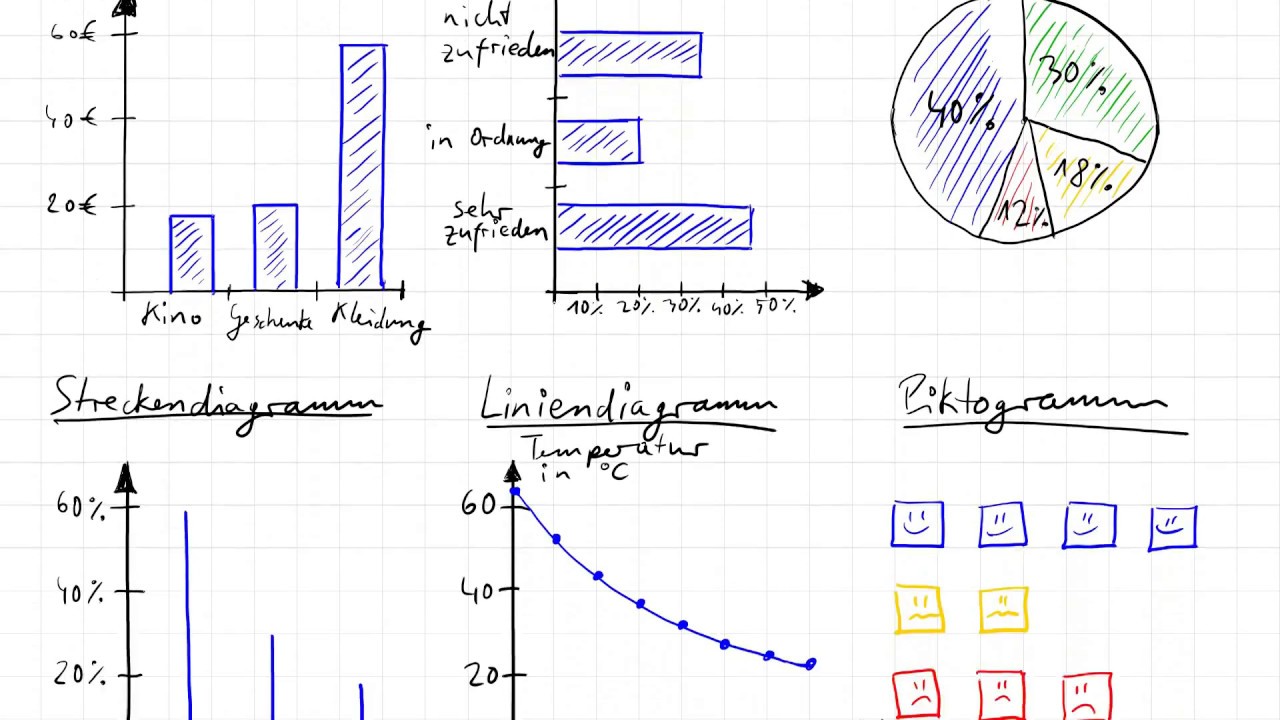 60€
40€
20€
Kino Geschenke Kleidung
nicht
zufrieden
in Ordnung
sehr
zufrieden
10% 20% 30% 40% 50%
40%
30%
18%
12%
Streckendiagramm
60%
40%
20%
Liniendiagramm
Temperatur
in °C
60
40
20
Piktogramm